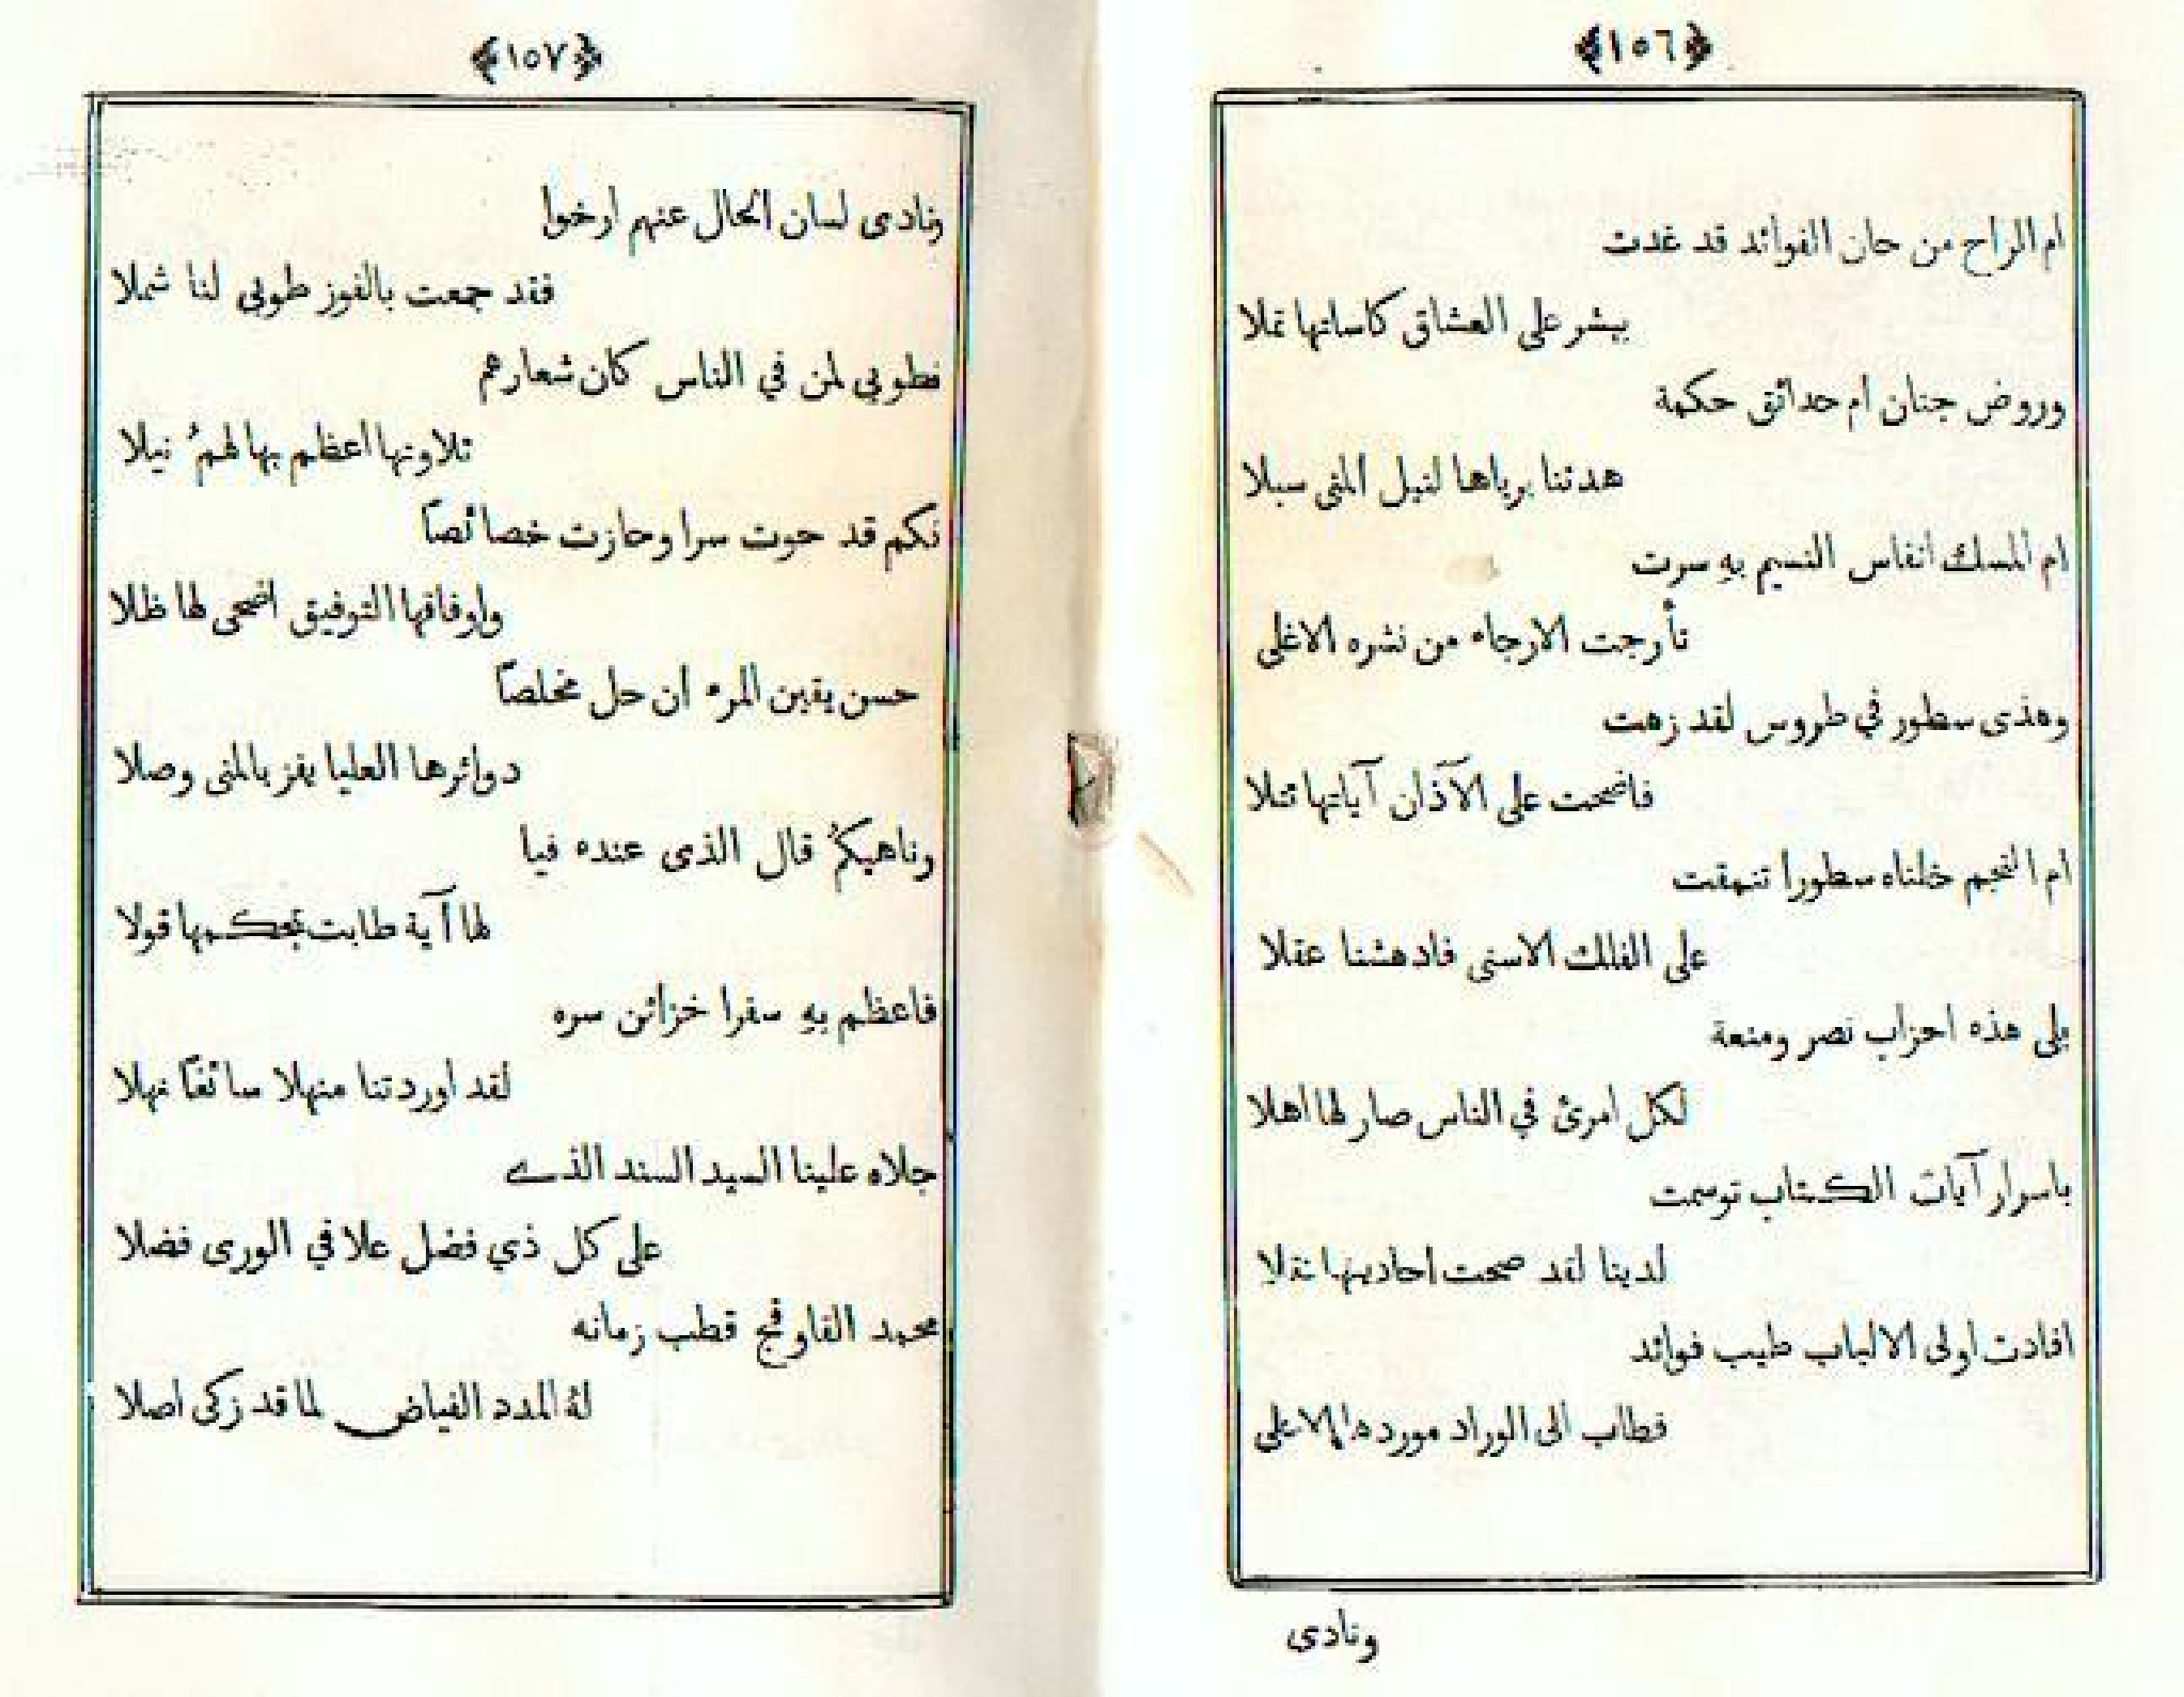 ﴿١٥٦﴾
ام الراح من حان الفوائد قد غدت
ببشر على العشاق كاساتها تملا
وروض جنان ام حدائق حكمة
هدتنا برياها لنيل المنى سبلا
ام المسك انفاس النسيم بهِ سرت
تأرجت الارجاء من نشره الاغلى
وهذى سطور في طروس لقد زهت
فاضحت على الآذان آياتها تتلا
ام النجم خلناه سطورا تنمقت
على الفلك الاسنى فادهشنا عقلا
بلى هذه احزاب نصر ومنعة
لكل امرئ في الناس صار لها اهلا
باسرار آيات الكتاب توسمت
لدينا لقد صحت احاديثها نقلا
افادت اولى الالباب طيب فوائد
فطاب الى الوراد موردها الاعلى
ونادى
﴿١٥٧﴾
ونادى لسان الحال عنهم ارخوا
فقد جمعت بالفوز طوبى لنا شملا
فطوبي لمن في الناس كان شعارهم
تلاوتها اعظم بها لهمُ نيلا
فكم قد حوت سرا وحازت خصائصاً
واوفاقها التوفيق اضحى لها ظلا
حسن يقين المرء ان حل مخلصاً
دوائرها العليا يفز بالمنى وصلا
وناهيكمُ قال الذى عنده فيا
لها آية طابت بمحكمها قولا
فاعظم بهِ سفرا خزائن سره
لقد اوردتنا منهلا سائغاً نهلا
جلاه علينا السيد السند الذے
على كل ذي فضل علا في الورى فضلا
محمد القاوقجي قطب زمانه
لهُ المدد الفياض لما قد زكى اصلا